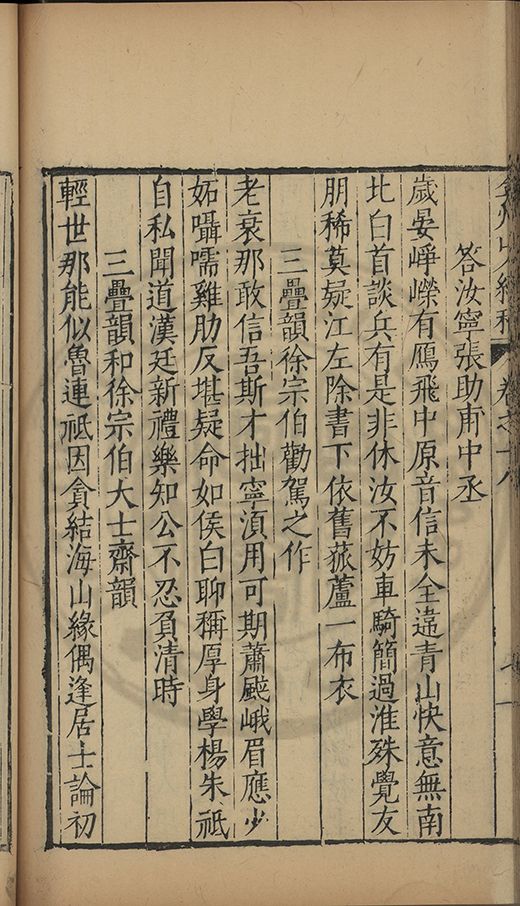 弇州山人續稿　卷之十八
答汝寧張助甫中丞
歲晏崢嶸有鴈飛中原音信未全違青山快意無南
北白首談兵有是非休汝不妨車騎簡過淮殊覺友
朋稀莫疑江左除書下依舊菰蘆一布衣
三疊韻徐宗伯勸駕之作
老衰那敢信吾斯才拙寧湏用可期蕭颯峨眉應少
妬囁嚅雞肋反堪疑命如侯白聊稱厚身學楊朱祇
自私聞道漢廷新禮樂知公不忍負清時
三疊韻和徐宗伯大士齋韻
輕世那能似魯連祇因貪結海山緣偶逢居士論初